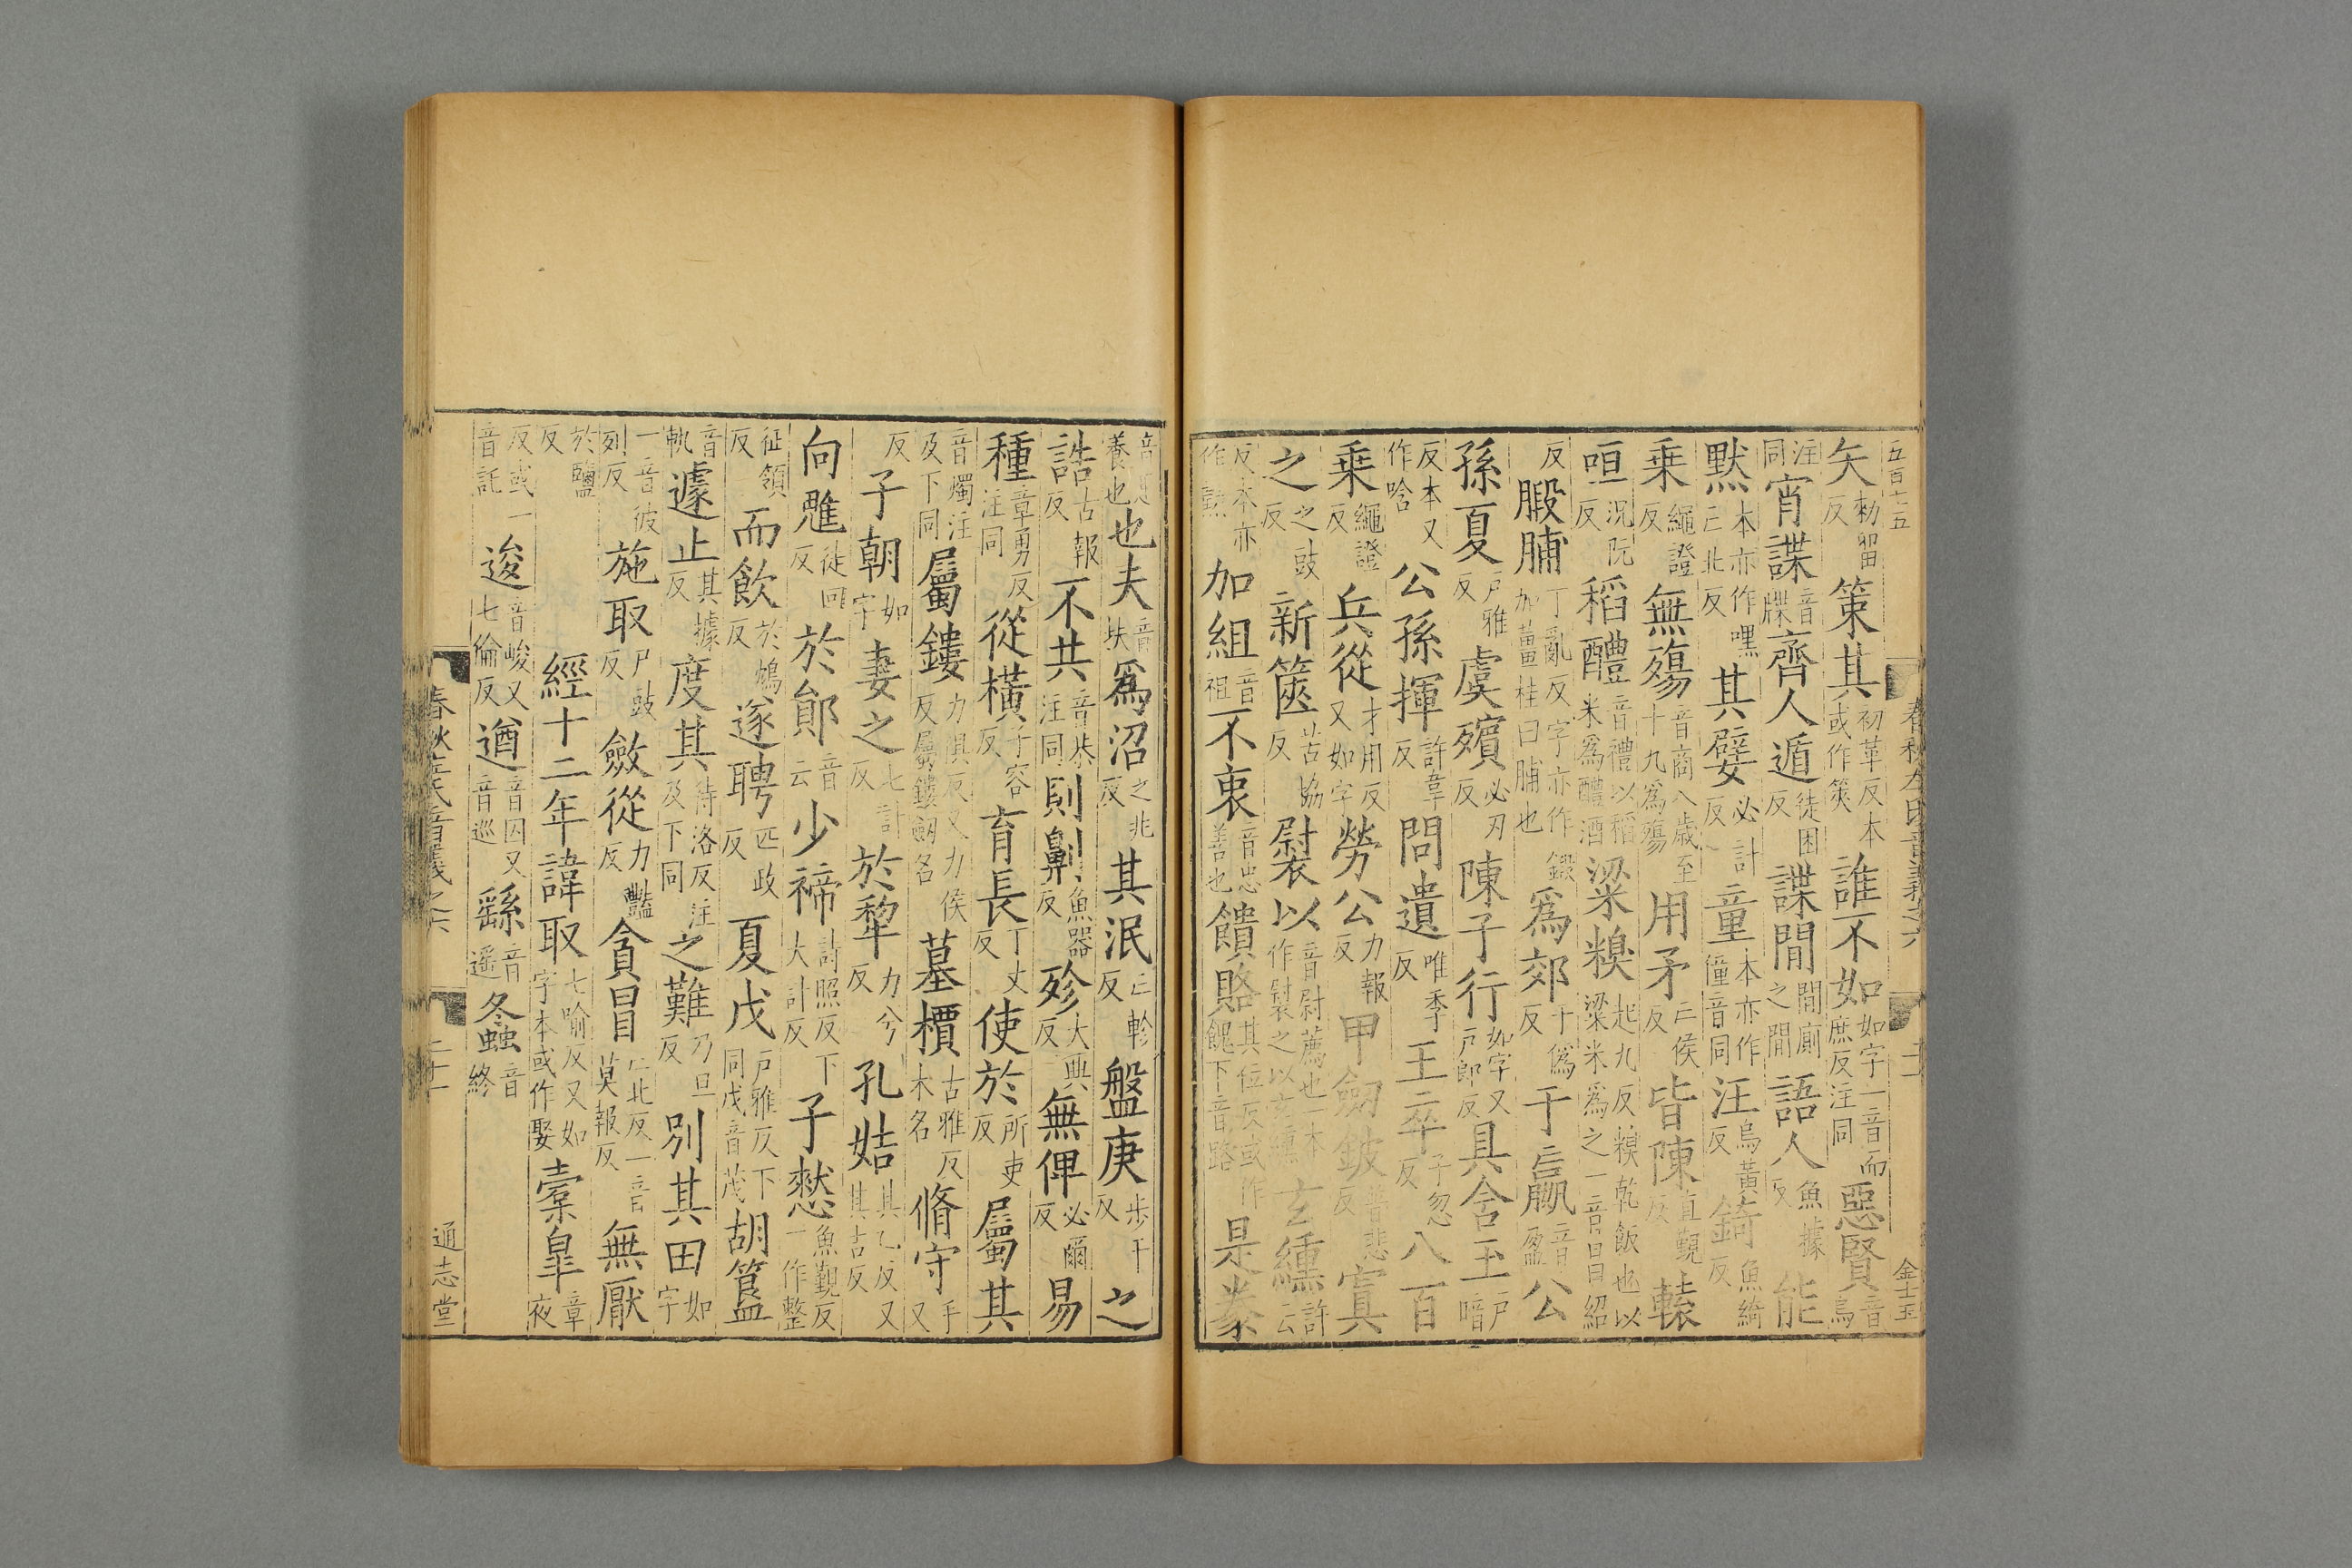 五百十五
矢勑留反策其初革反本或作筴誰不如如字一音而庶反注同惡賢音烏能
注同宵諜音牒齊人遁徒困反諜間間廁之間語人魚據反
默本亦作嘿亡北反其嬖必計反童本亦作僮音同汪烏黃反錡魚綺反
乗繩證反無殤音商八歲至十九爲殤用矛亡侯反皆陳直覲反轅
咺況阮反稻醴音禮以稻米爲醴酒粱糗起九反糗乾飯也以粱米爲之一音昌紹
反腶脯丁亂反字亦作鍜加薑桂曰脯也爲郊于僞反于嬴音盈公
孫夏戶雅反虞殯必刃反陳子行如字又戶郎反具含玉戶暗
反本又作唅公孫揮許韋反問遺唯季反王卒子忽反八百
乗繩證反兵從才用反又如字勞公力報反甲劒鈹普悲反寘
之之豉反新篋苦協反褽以音尉薦也一本作褽之以玄纁玄纁許云
反本亦作勲加組音祖不衷音忠善也饋賂其位反或作餽下音路是豢
春秋左氏音義之六
二十一
金士玉
養也也夫音扶爲沼之兆反其泯亡軫反盤庚步干反之
誥古報反不共音恭注同則劓魚器反殄大典反無俾必爾反易
種章勇反注同從橫子容反育長丁丈反使於所吏反屬其
音燭注及下同屬鏤力俱反又力侯反屬鏤劒名墓檟古雅反木名脩守手又
反子朝如字妻之七計反於犂力兮反孔姞其乙反又其吉反
向魋徒回反於鄖音云少禘詩照反下大計反子憖魚覲反一作整
征領反而飲於鴆反遂聘匹政反夏戊戶雅反下同戊音茂胡簋
音軌遽止其據反度其待洛反注及下同之難乃旦反別其田如字
一音彼列反施取尸豉反斂從力豔反貪冒亡北反一音莫報反無厭
於鹽反經十二年諱取七喻反又如字本或作娶橐臯章夜
反或一音託逡音峻又七倫反遒音囚又音巡繇音遥冬螽音終
春秋左氏音義之六
二十一
通志堂